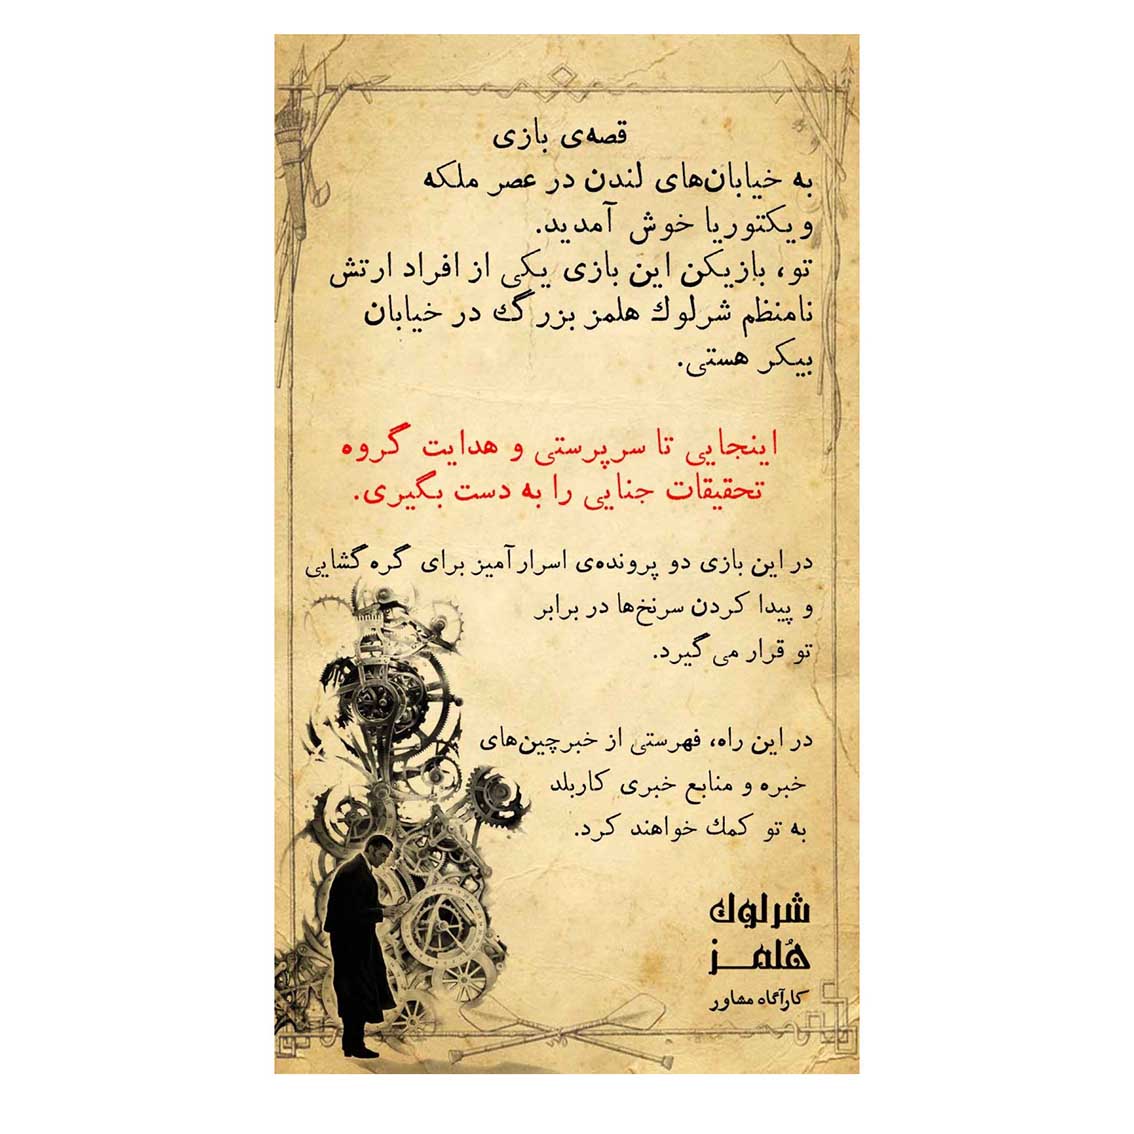 قصه‌ی بازی
به خیابان‌های لندن در عصر ملکه
ویکتوریا خوش آمدید.
تو، بازیکن این بازی یکی از افراد ارتش
نامنظم شرلوك هلمز بزرگ در خیابان
بیکر هستی.
اینجایی تا سرپرستی و هدایت گروه
تحقیقات جنایی را به دست بگیری.
در این بازی دو پرونده‌ی اسرارآمیز برای گره گشایی
و پیدا کردن سرنخ‌ها در برابر
تو قرار می گیرد.
در این راه، فهرستی از خبرچین‌های
خبره و منابع خبری کاربلد
به تو کمك خواهند کرد.
شرلوك
هُلمـز
کارآگاه مشاور